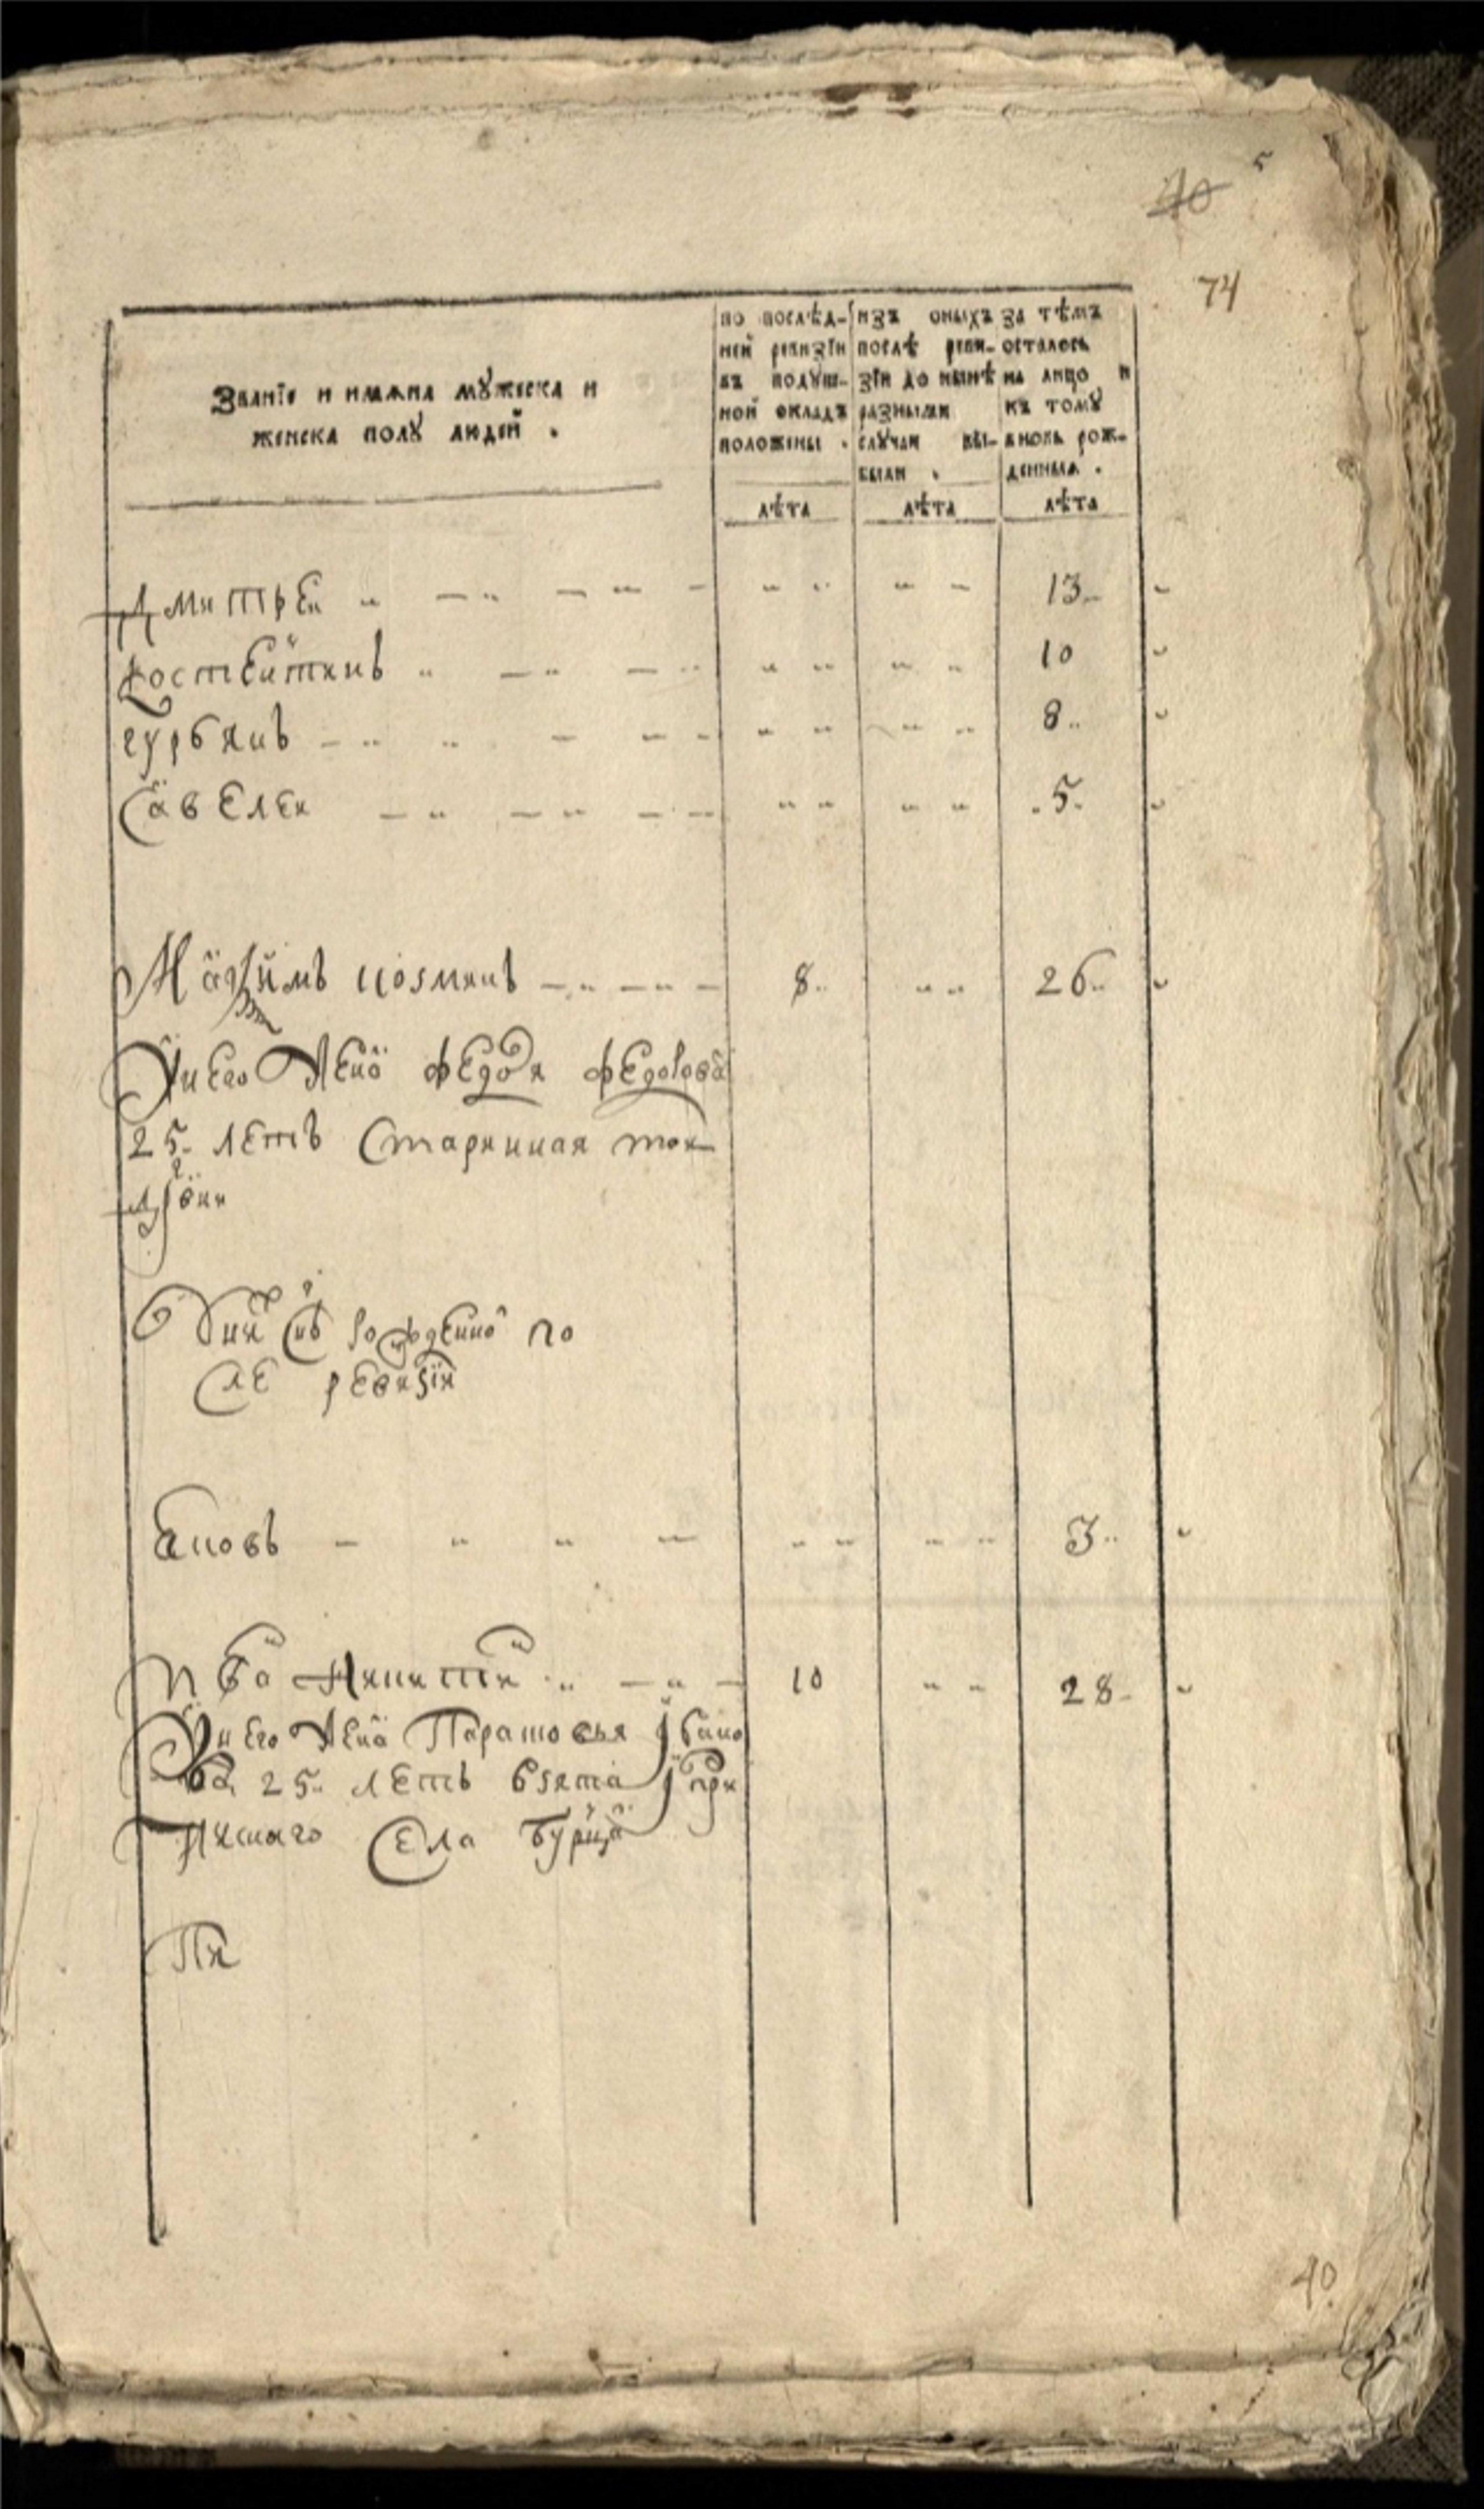 40 5
74
Званїе и имѧна мꙋжеска и
женеска полꙋ людей .
по послѣд-
ней ревизїи
въ подꙋш-
ной окладъ
положены .
лѣта
изъ оныхъ
послѣ реви-
зїи до нынѣ
разными
слꙋчаи вы-
были .
лѣта
за тѣмъ
осталось
на лицо и
къ томꙋ
вновь рож-
денныѧ .
лѣта
Дмитреи 13
Костентинъ 10
гурьянъ 8
Савелеи 5
Маѯимъ козминъ 8 26
У него жена федося федотова
25 летъ старинная тои
дрвни
у них снъ рожденно по
сле ревизїи
Іновъ 3
Иван Никитин 10 28
У него жена Парашовья Iвано
ва 25 летъ взята I при
писнаго села
Пя
40